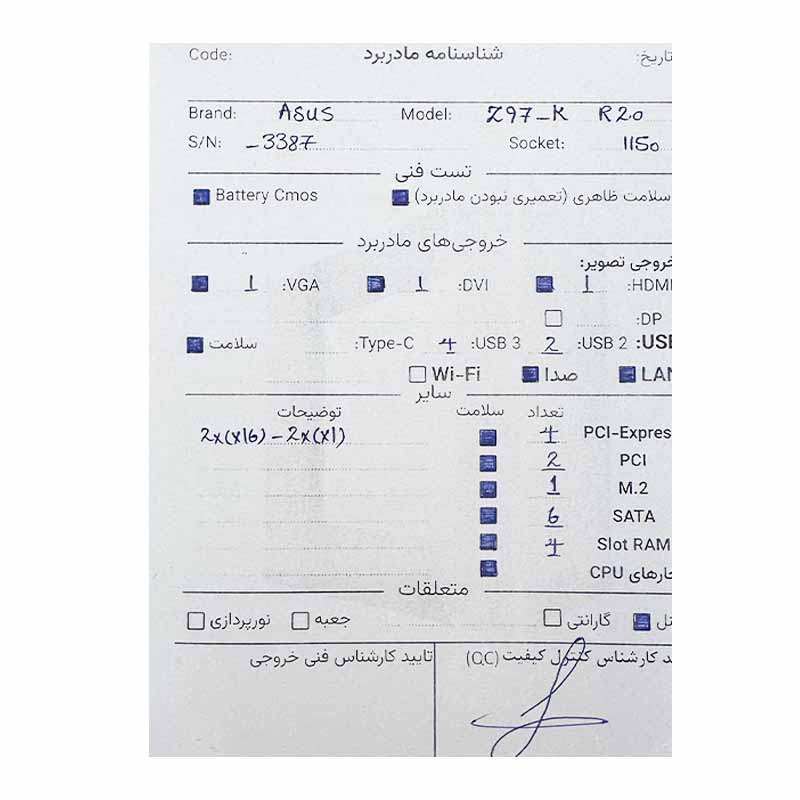 تاریخ: شناسنامه مادربرد Code:
Brand: ASUS Model: Z97-K R20
S/N: -3387 Socket: 1150
تست فنی
سلامت ظاهری (تعمیری نبودن مادربرد) Battery Cmos
خروجی‌های مادربرد
خروجی تصویر:
HDMI: 1 DVI: 1 VGA: 1
DP:
USB: USB 2: 2 USB 3: 4 Type-C: سلامت
LAN صدا Wi-Fi
سایر
تعداد سلامت توضیحات
PCI-Expres 4 2x(x16) - 2x(x1)
PCI 2
M.2 1
SATA 6
Slot RAM 4
CPU
متعلقات
گارانتی جعبه نورپردازی
کارشناس کنترل کیفیت (QC) تایید کارشناس فنی خروجی